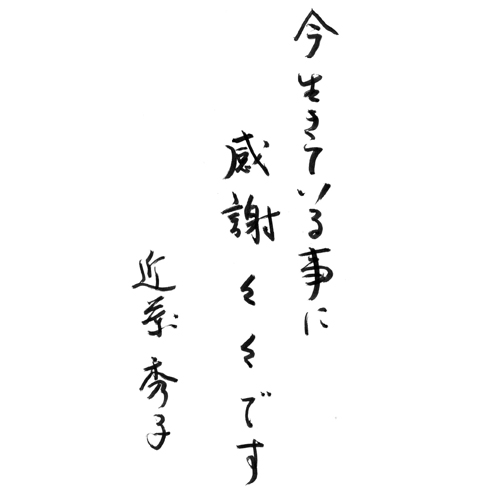 今生きている事に
感謝々々です
近藤秀子